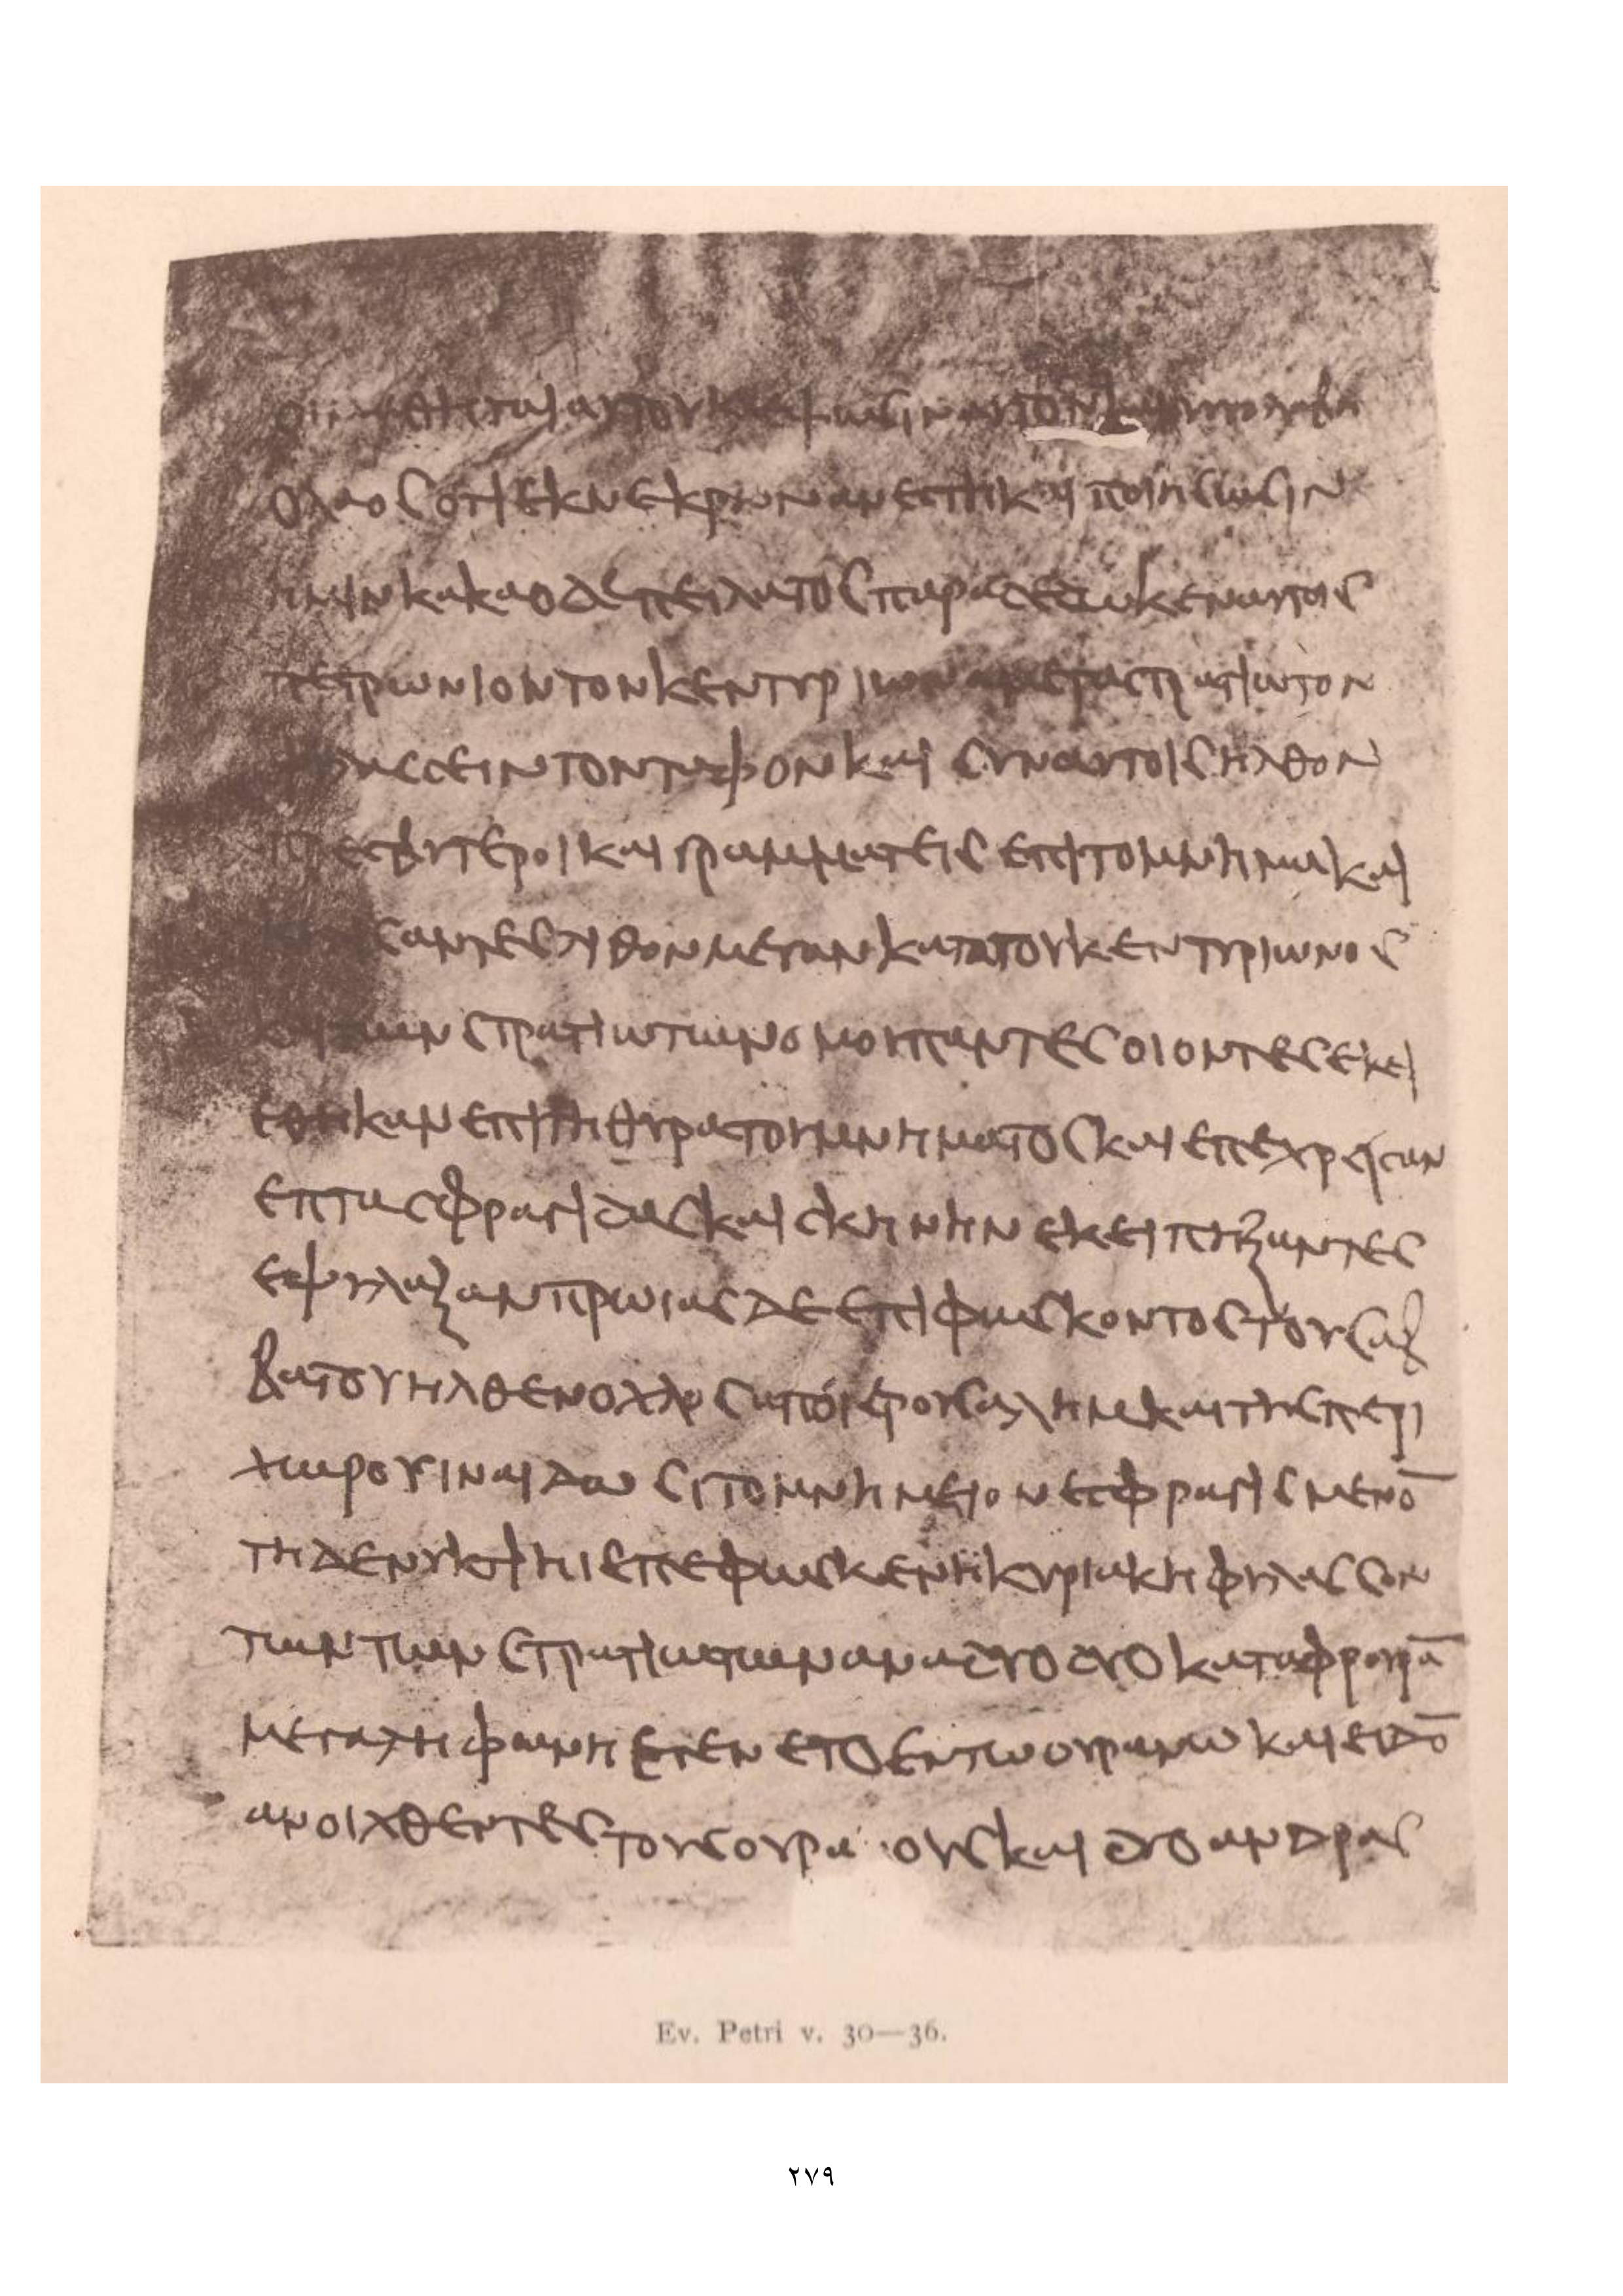 οι μαθηται αυτου κλεψωσιν αυτον και υπολαβη
ο λαος οτι εκ νεκρων ανεστη και ποιησωσιν
ημιν κακα ο δε πειλατος παραδεδωκεν αυτοις
πετρωνιον τον κεντυριωνα μετα στρατιωτον
φυλασσειν τον ταφον και συν αυτοις ηλθον
πρεσβυτεροι και γραμματεις επι το μνημα και
σαντες λιθον μεγαν κατα του κεντυριωνος
και των στρατιωτων ομου παντες οι οντες εκει
εθηκαν επι τη θυρα του μνηματος και επεχρεισαν
επτα σφραγιδας και σκηνην εκει πηξαντες
εφυλαξαν πρωιας δε επιφωσκοντος του σαβ
βατου ηλθεν οχλος απο ιερουσαλημ και της περι
χωρου ινα ιδωσι το μνημειον εσφραγισμενο̅
τη δε νυκτι η επεφωσκεν η κυριακη φυλασσον
των των στρατιωτων ανα δυο δυο κατα φρουρα̅
μεγαλη φωνη εγενετο εν τω ουρανω και ειδο̅
ανοιχθεντες τους ουρα ους και δυο ανδρας
Ev. Petri v. 30—36.
٢٧٩